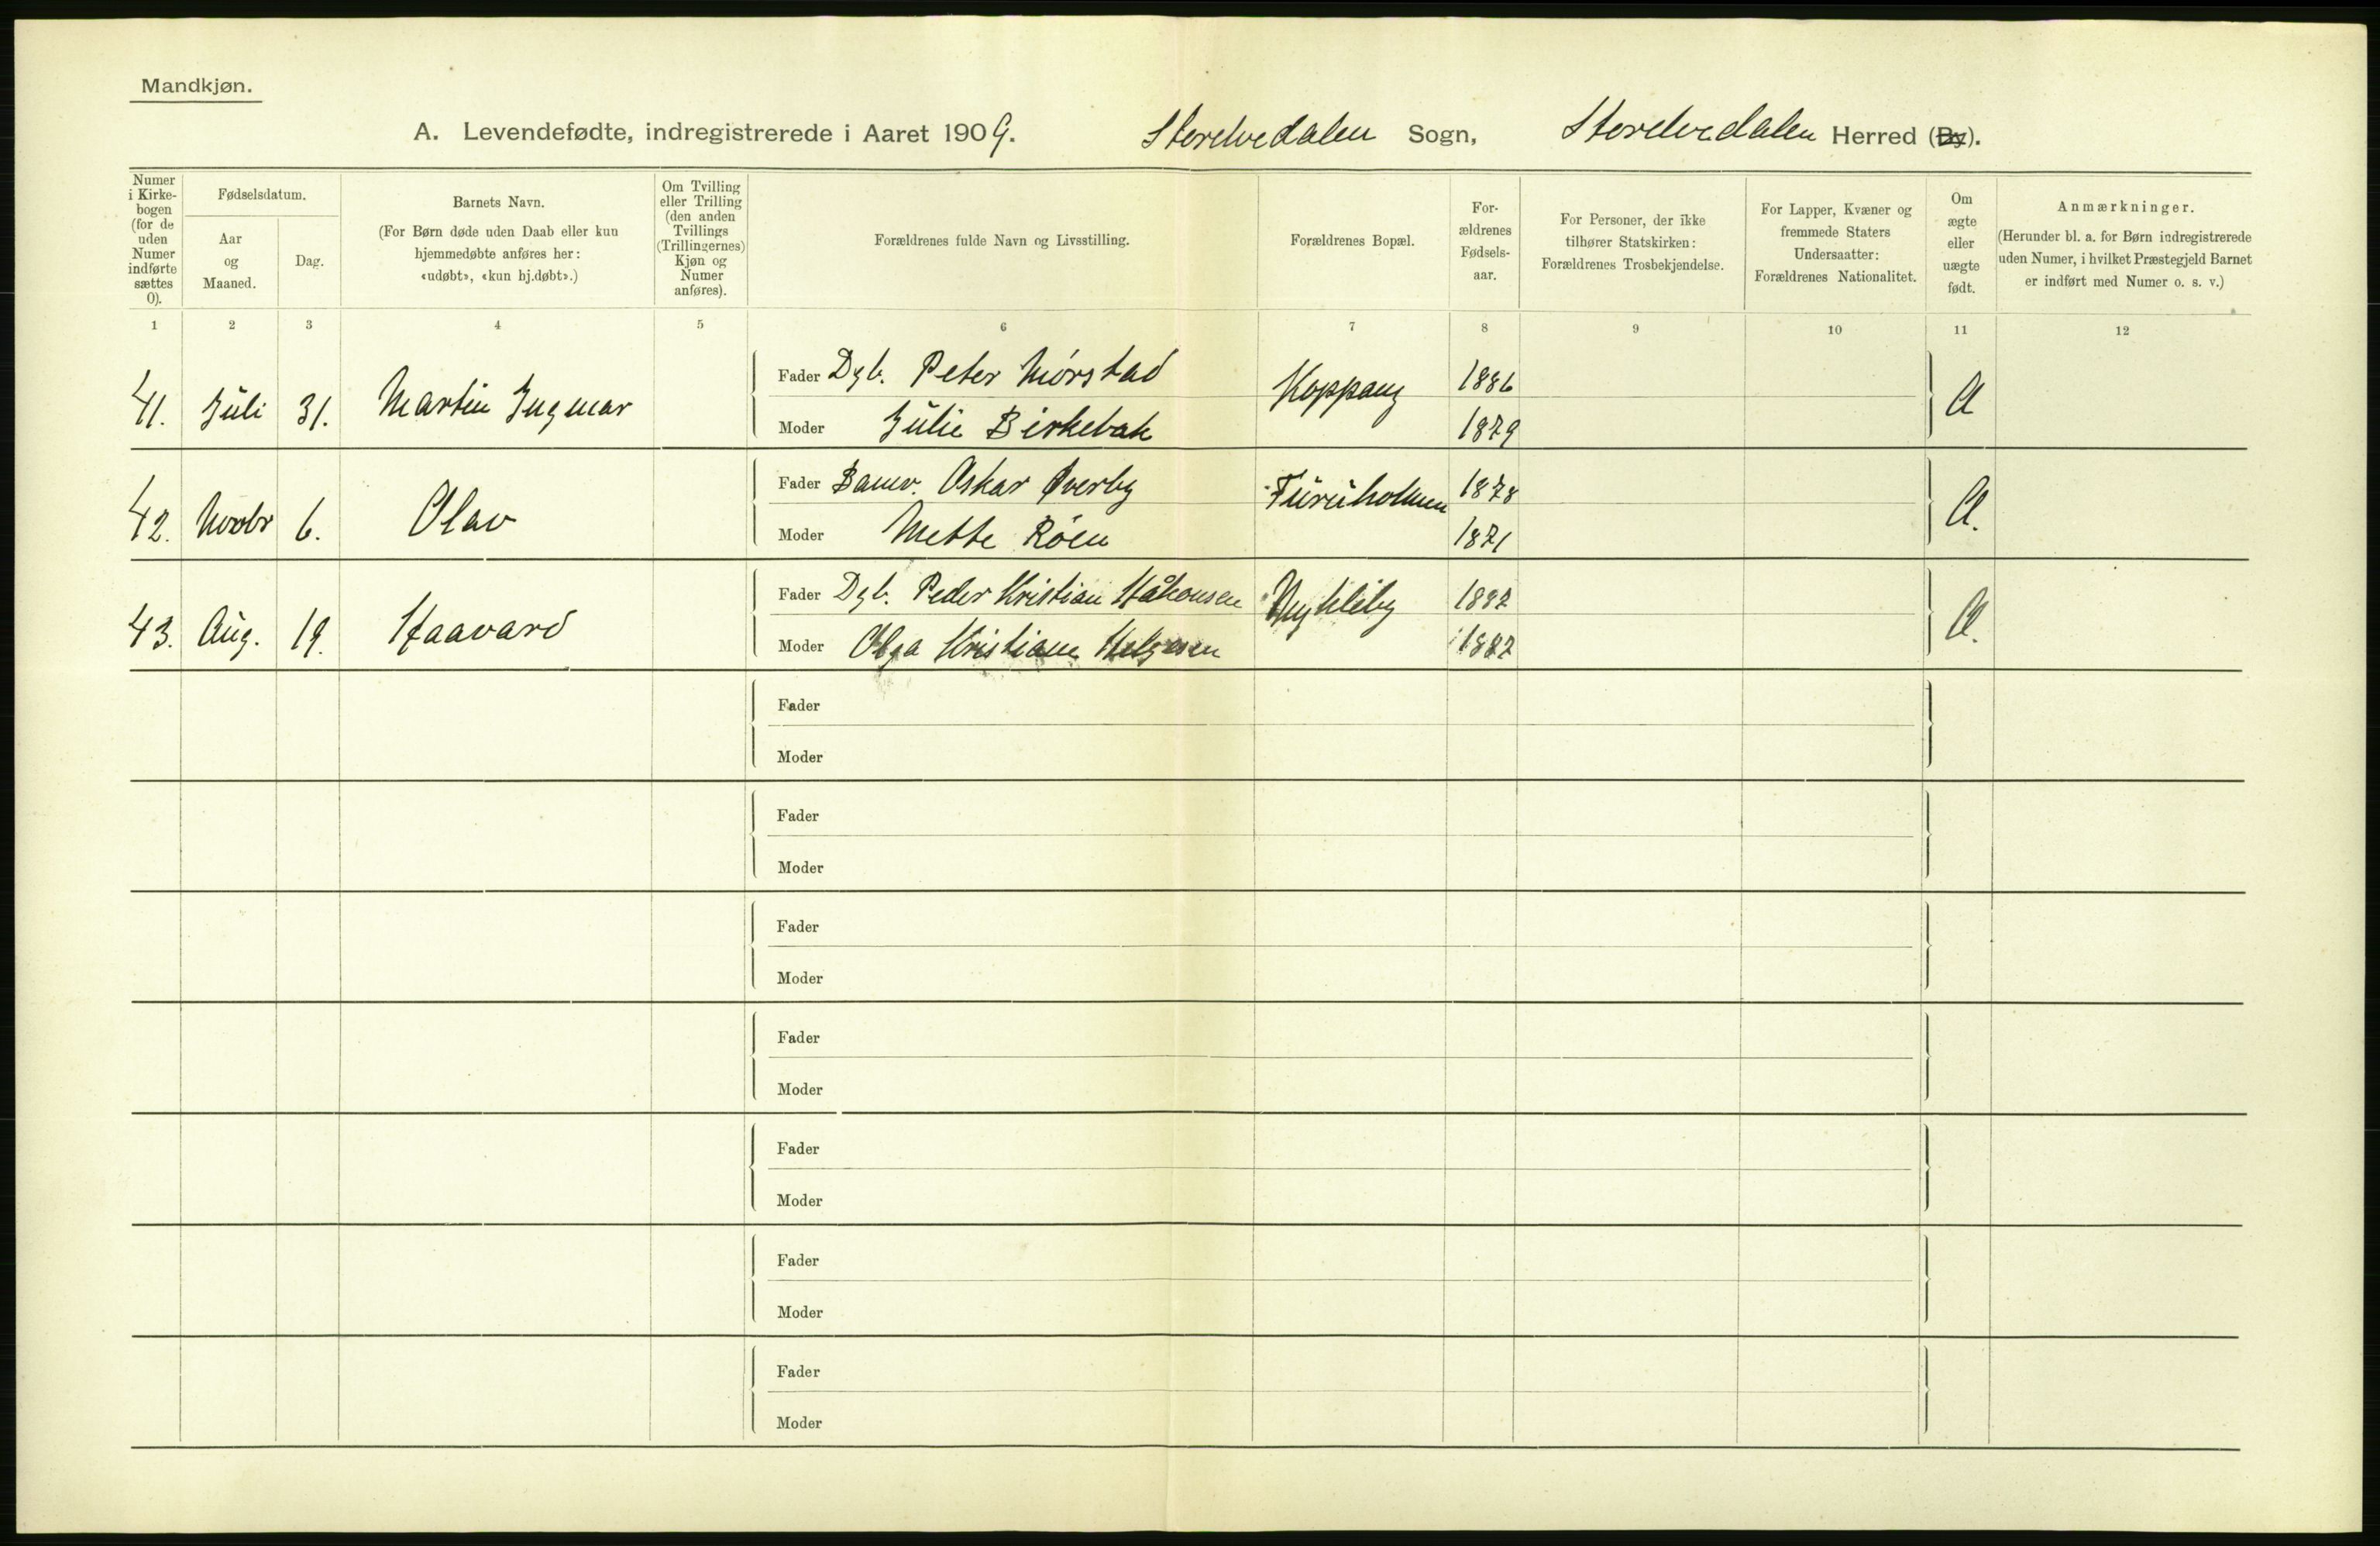 Mandkjøn.
A. Levendefødte, indregistrerede i Aaret 1909. Storelvedalen Sogn, Storelvedalen Herred (By).
Numer i Kirkebogen (for de uden Numer indførte sættes 0).
Fødselsdatum.
Aar og Maaned.
Dag.
Barnets Navn.
(For Børn døde uden Daab eller kun hjemmedøbte anføres her: «udøbt», «kun hj.døbt».)
Om Tvilling eller Trilling (den anden Tvillings (Trillingernes) Kjøn og Numer anføres).
Forældrenes fulde Navn og Livsstilling.
Forældrenes Bopæl.
For-ældrenes Fødsels-aar.
For Personer, der ikke tilhører Statskirken: Forældrenes Trosbekjendelse.
For Lapper, Kvæner og fremmede Staters Undersaatter: Forældrenes Nationalitet.
Om ægte eller uægte født.
Anmærkninger.
(Herunder bl. a. for Børn indregistrerede uden Numer, i hvilket Præstegjeld Barnet er indført med Numer o. s. v.)
1 2 3 4 5 6 7 8 9 10 11 12
41. Juli 31. Martin Ingmar Fader Dgb. Peter Mørstad Koppang 1886 Æ
Moder Julie Birkebak 1879
42. Novbr 6. Olav Fader Banev. Oskar Øverby Furuholmen 1878 Æ.
Moder Mette Røen 1871
43. Aug. 19. Haavard Fader Dgb. Peder Kristian Håkonsen 1882 Æ.
Moder Olga Kristiane Helgesen 1882
Fader
Moder
Fader
Moder
Fader
Moder
Fader
Moder
Fader
Moder
Fader
Moder
Fader
Moder